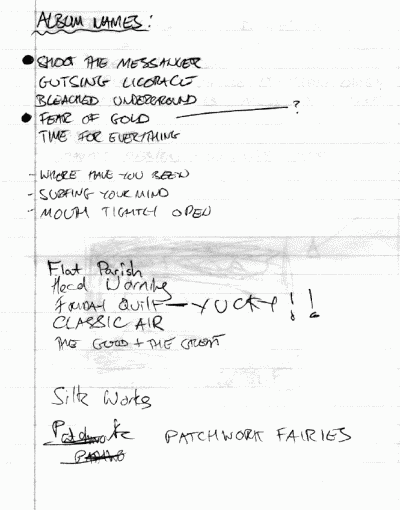 ALBUM NAMES:
SHOOT THE MESSANGER
GUTSING LICORACE
BLEACHED UNDERGROUND
FEAR OF GOLD ?
TIME FOR EVERYTHING
- WHERE HAVE YOU BEEN
- SURFING YOUR MIND
- MOUTH TIGHTLY OPEN
Flat Parish
Head Warning
QUILT — YUCKY!!
CLASSIC AIR
THE GOOD + THE GREAT
Silk Works
Patchwork PATCHWORK FAIRIES